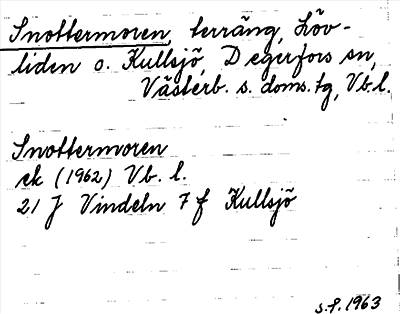 Snottermoren, terräng, Löv-
liden o. Kullsjö, Degerfors sn,
Västerb. s. doms.tg, Vb.l.
Snottermoren
ek (1962) Vb. l.
21 J Vindeln 7 f Kullsjö
s.f. 1963